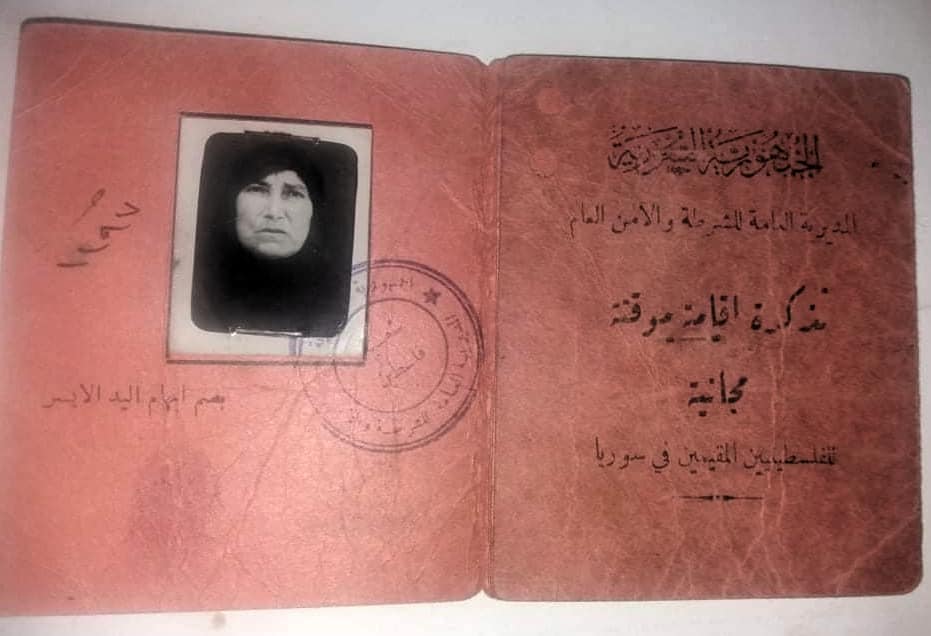 الجمهورية السورية
المديرية العامة للشرطة والأمن العام
تذكرة اقامة موقتة
مجانية
للفلسطينيين المقيمين في سوريا
بصم ابهام اليد الايسر
فلسطين